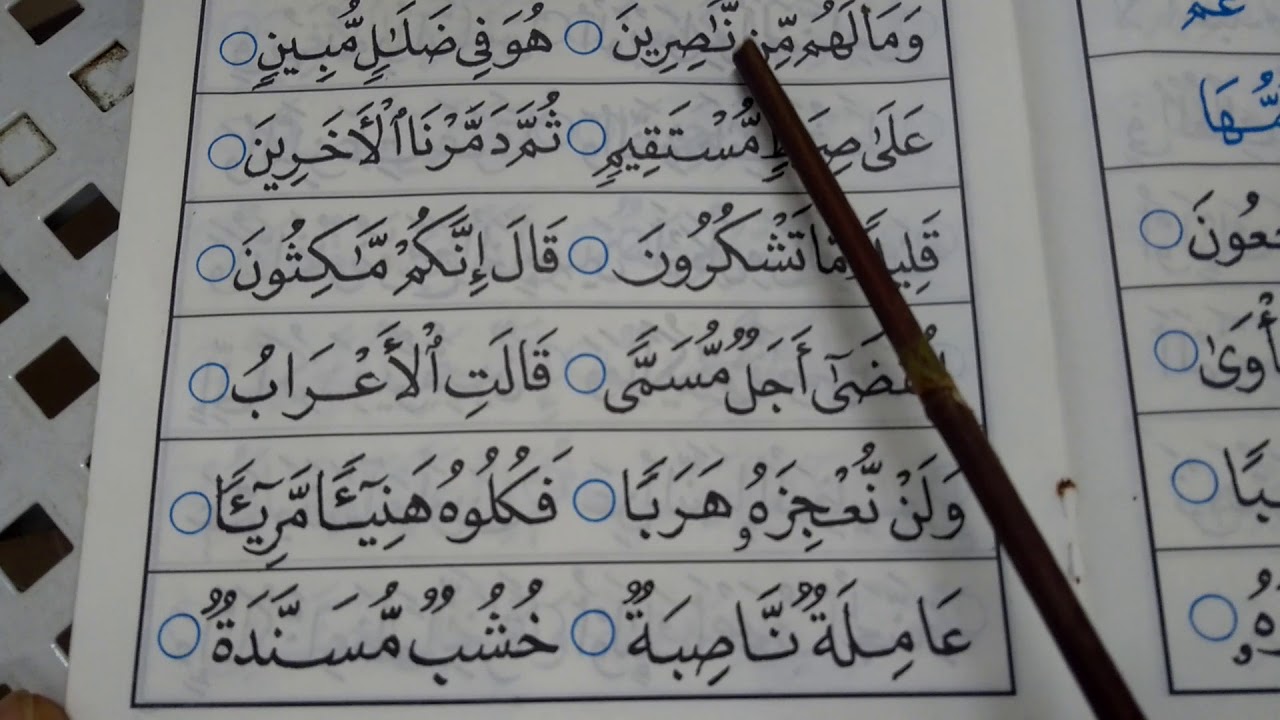 وَمَا لَهُم مِّن نَّٰصِرِينَ ○ هُوَ فِي ضَلَٰلٍ مُّبِينٍ ○
عَلَىٰ صِرَٰطٍ مُّسْتَقِيمٍ ○ ثُمَّ دَمَّرْنَا ٱلْأَخَرِينَ ○
قَلِيلًا مَّا تَشْكُرُونَ ○ قَالَ إِنَّكُمْ مَّٰكِثُونَ ○
أَجَلٌ مُّسَمًّى ○ قَالَتِ ٱلْأَعْرَابُ ○
وَلَنْ نُّعْجِزَهُۥ هَرَبًا ○ فَكُلُوهُ هَنِيٓـًٔا مَّرِيٓـًٔا ○
عَامِلَةٌ نَّاصِبَةٌ ○ خُشُبٌ مُّسَنَّدَةٌ ○